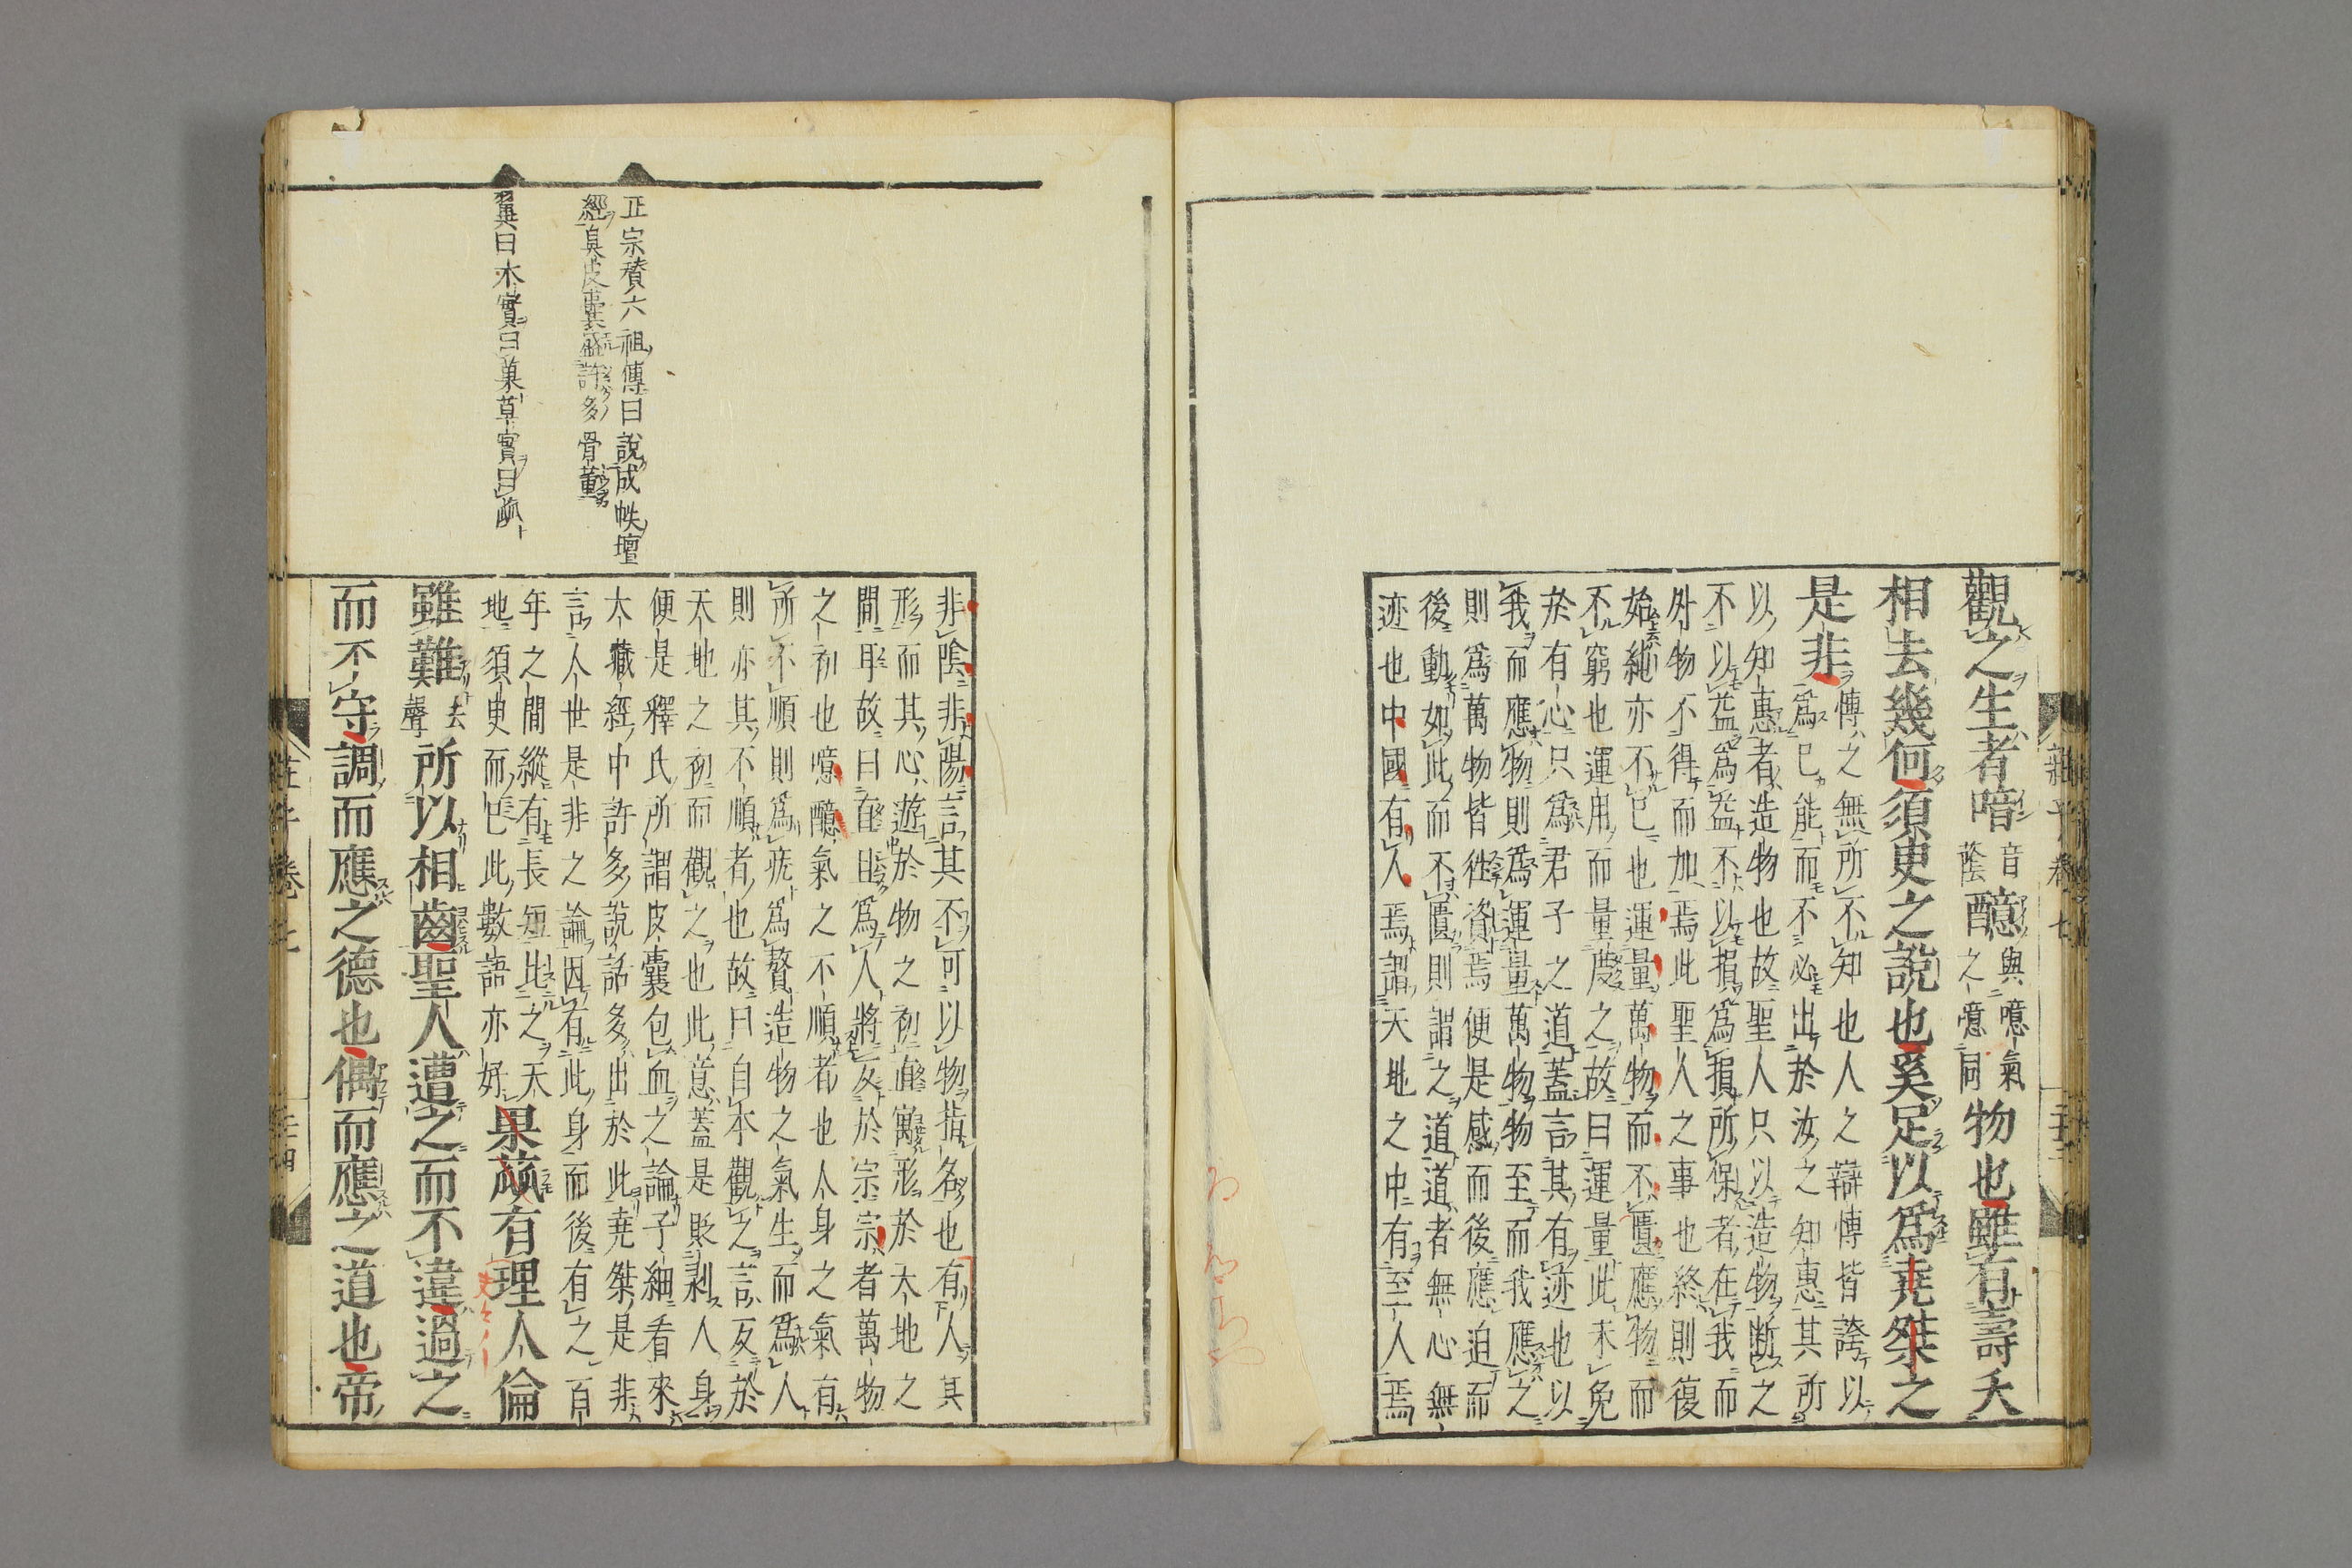 觀之生者喑音蔭醷與噫氣之噫同物也雖有壽夭
相去幾何須臾之說也奚足以爲堯桀之
是非
愽之無所不知也人之辯愽皆誇以
爲已能而不必出於汝之知惠其所
以知惠者造物也故聖人只以造物斷之
不以益爲益不以損爲損所保者在我而
外物不得而加焉此聖人之事也終則復
始綿亦不已也運量萬物而不匱應物而
不窮也運用而量度之故曰運量此未免
於有心只爲君子之道蓋言其有迹也以
我而應物則爲運量萬物物至而我應之
則爲萬物皆往資焉便是感而後應迫而
後動如此而不匱則謂之道道者無心無
迹也中國有人焉謂天地之中有至人焉
非陰非陽言其不可以物指名也有人其
形而其心遊於物之初直寓形於天地之
間耳故曰直且爲人將反於宗宗者萬物
之初也喑醷氣之不順者也人身之氣有
所不順則爲疣爲贅造物之氣生而爲人
則亦其不順者也故曰自本觀之言反於
天地之初而觀之也此意蓋是貶剥人身
便是釋氏所謂皮囊包血之論子細看來
大藏經中許多說話多出於此堯桀是非
言人世是非之論因有此身而後有之百
年之間縱有長短比之天
地須臾而已此數語亦好
果蓏有理人倫
雖難去聲所以相齒聖人遭之而不違過之
而不守調而應之德也偶而應之道也帝
正宗賛六祖傳曰說成帙壇
經臭皮囊盛許多骨董
翼曰木實曰菓草實曰蓏
莊子卷七